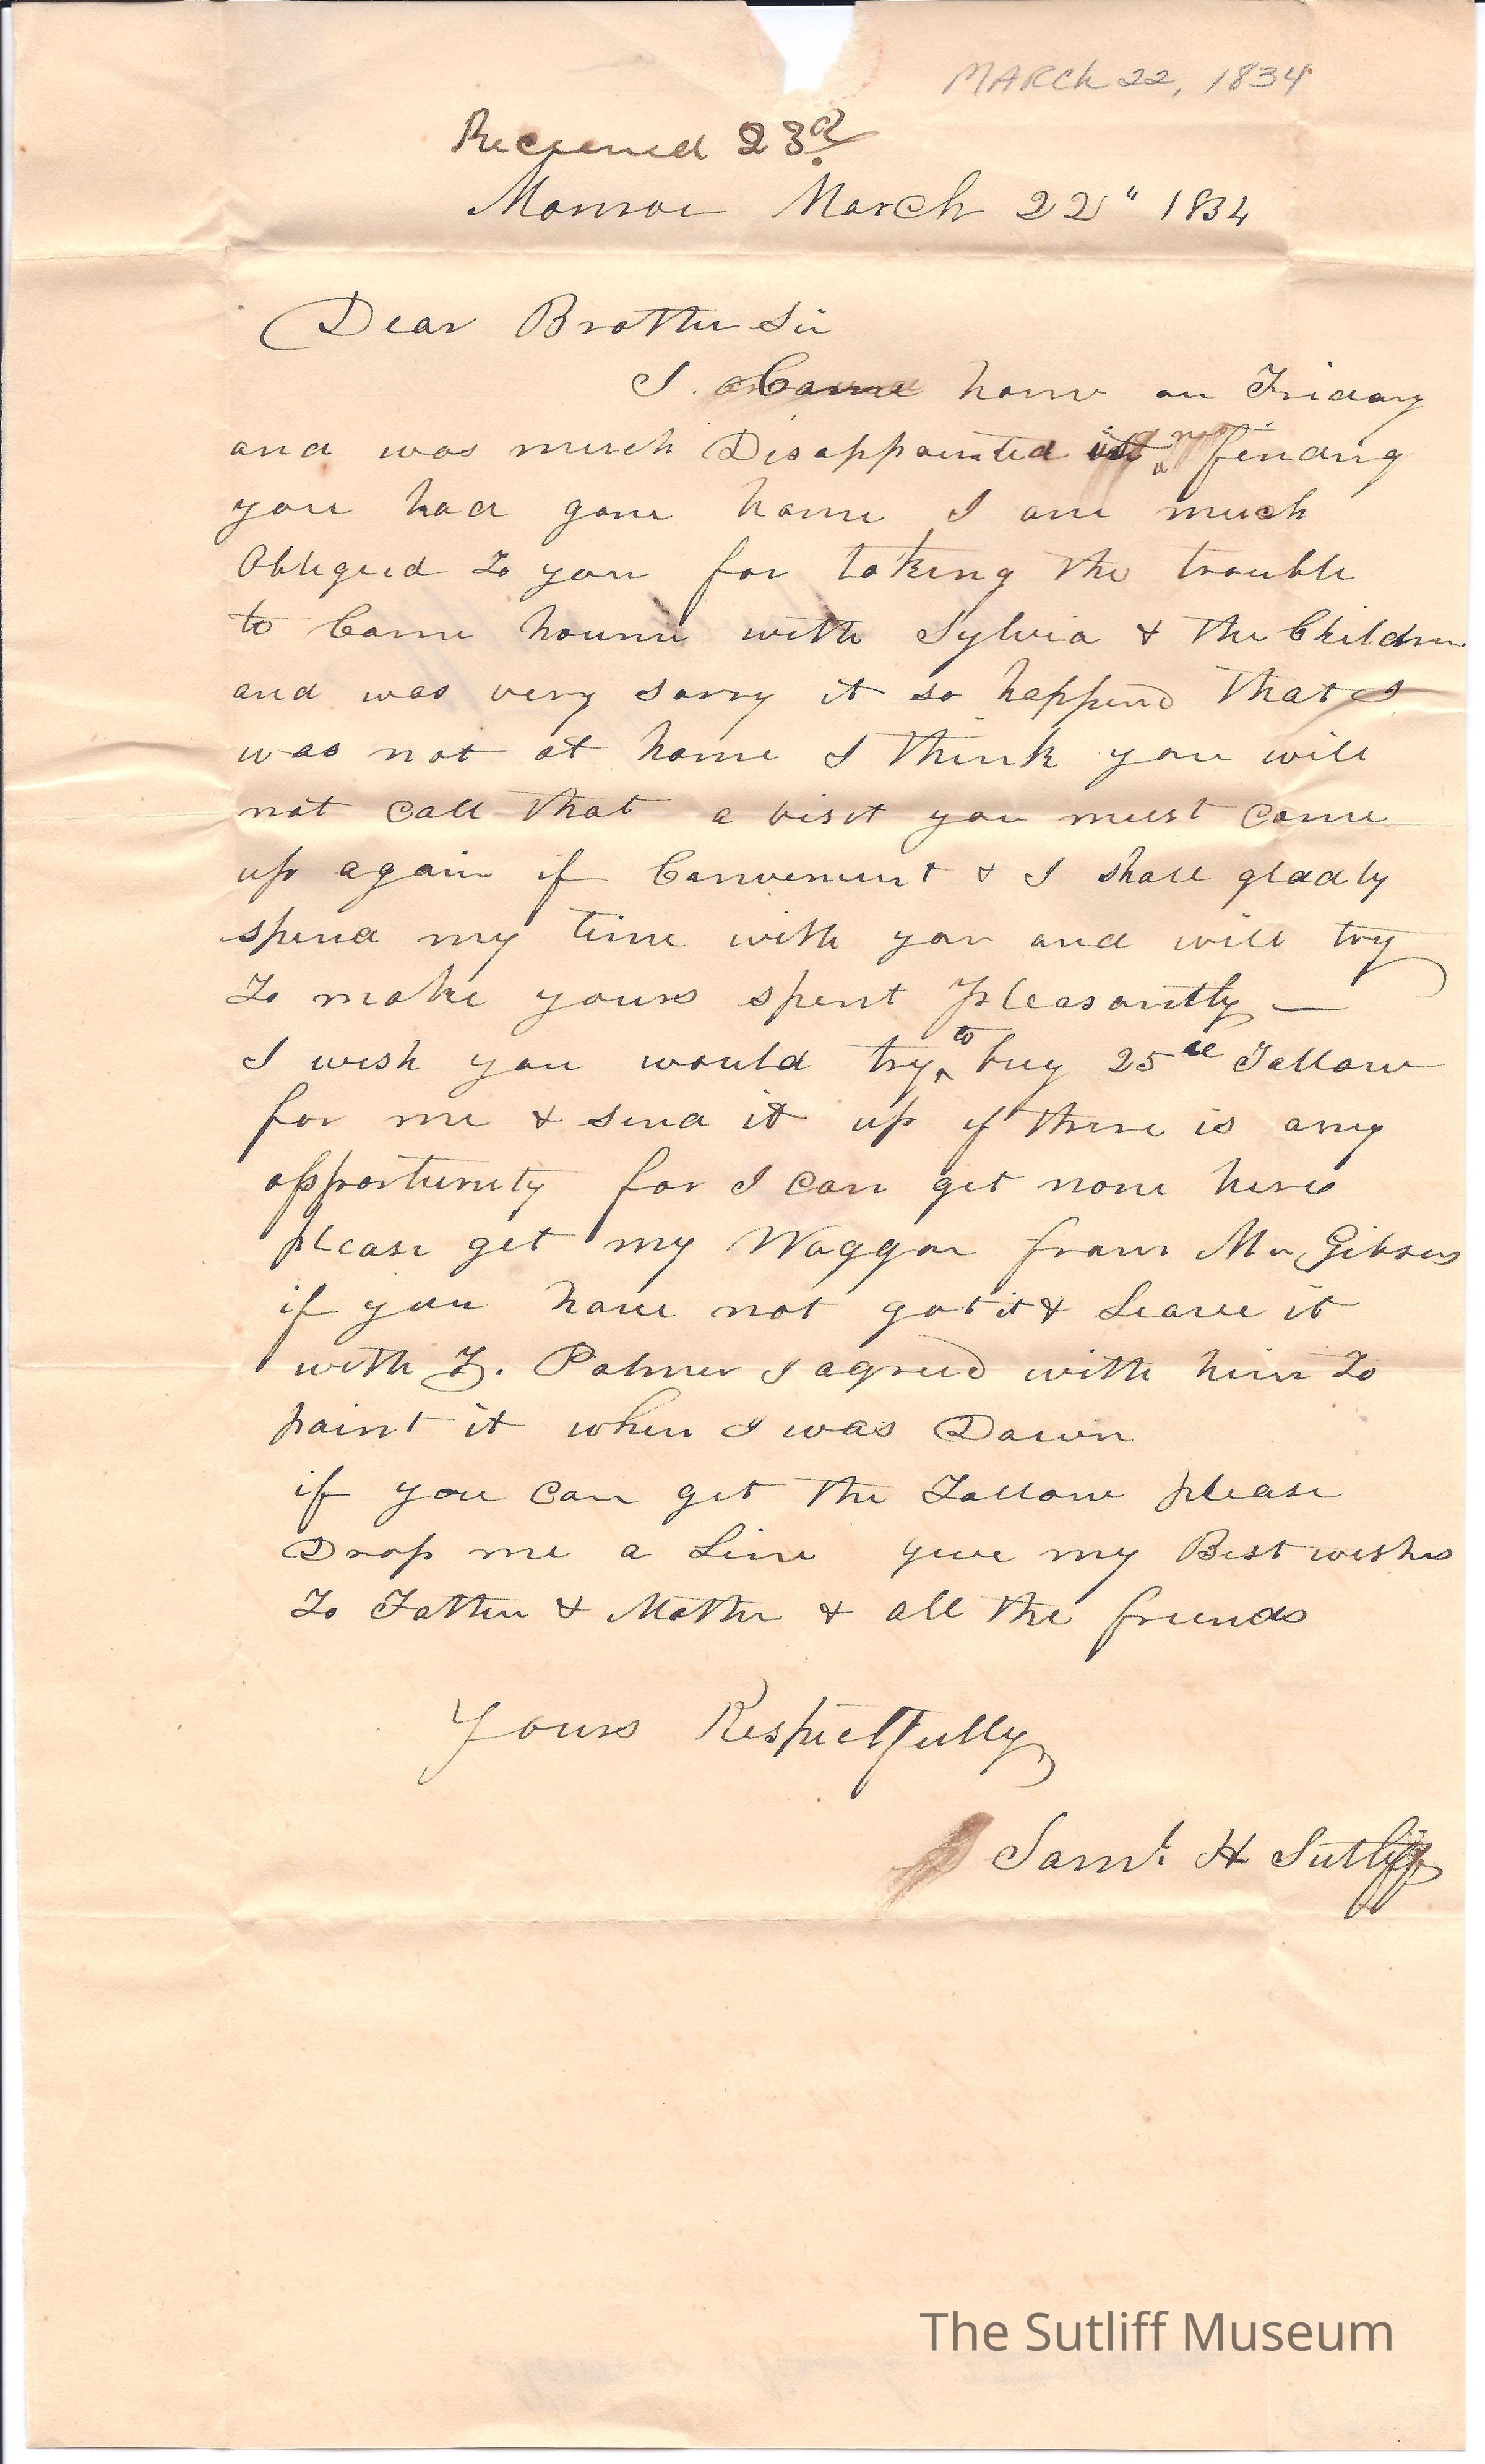 MARCh 22, 1834
Received 23d
Monroe March 22" 1834
Dear Brother Sir
I Came home on Friday
and was much Disappointed finding
you had gone home I am much
Obliged to you for taking the trouble
to Come houme with Sylvia & the Children
and was very sorry it so happend that I
was not at home I think you will
not call that a visit you must come
up again if Convenient & I shall gladly
spend my time with you and will try
To make yours spent pleasantly —
I wish you would try to buy 25 Tallow
for me & send it up if there is any
opportunity for I can get none here
please get my Waggon from Mr Gibsons
if you have not got it & Leave it
with Z. Palmer I agreed with him to
paint it when I was Down
if you can get the Tallow please
Drop me a Line give my Best wishes
To Father & Mother & all the friends
Yours Respectfully
Saml. H Sutliff
The Sutliff Museum